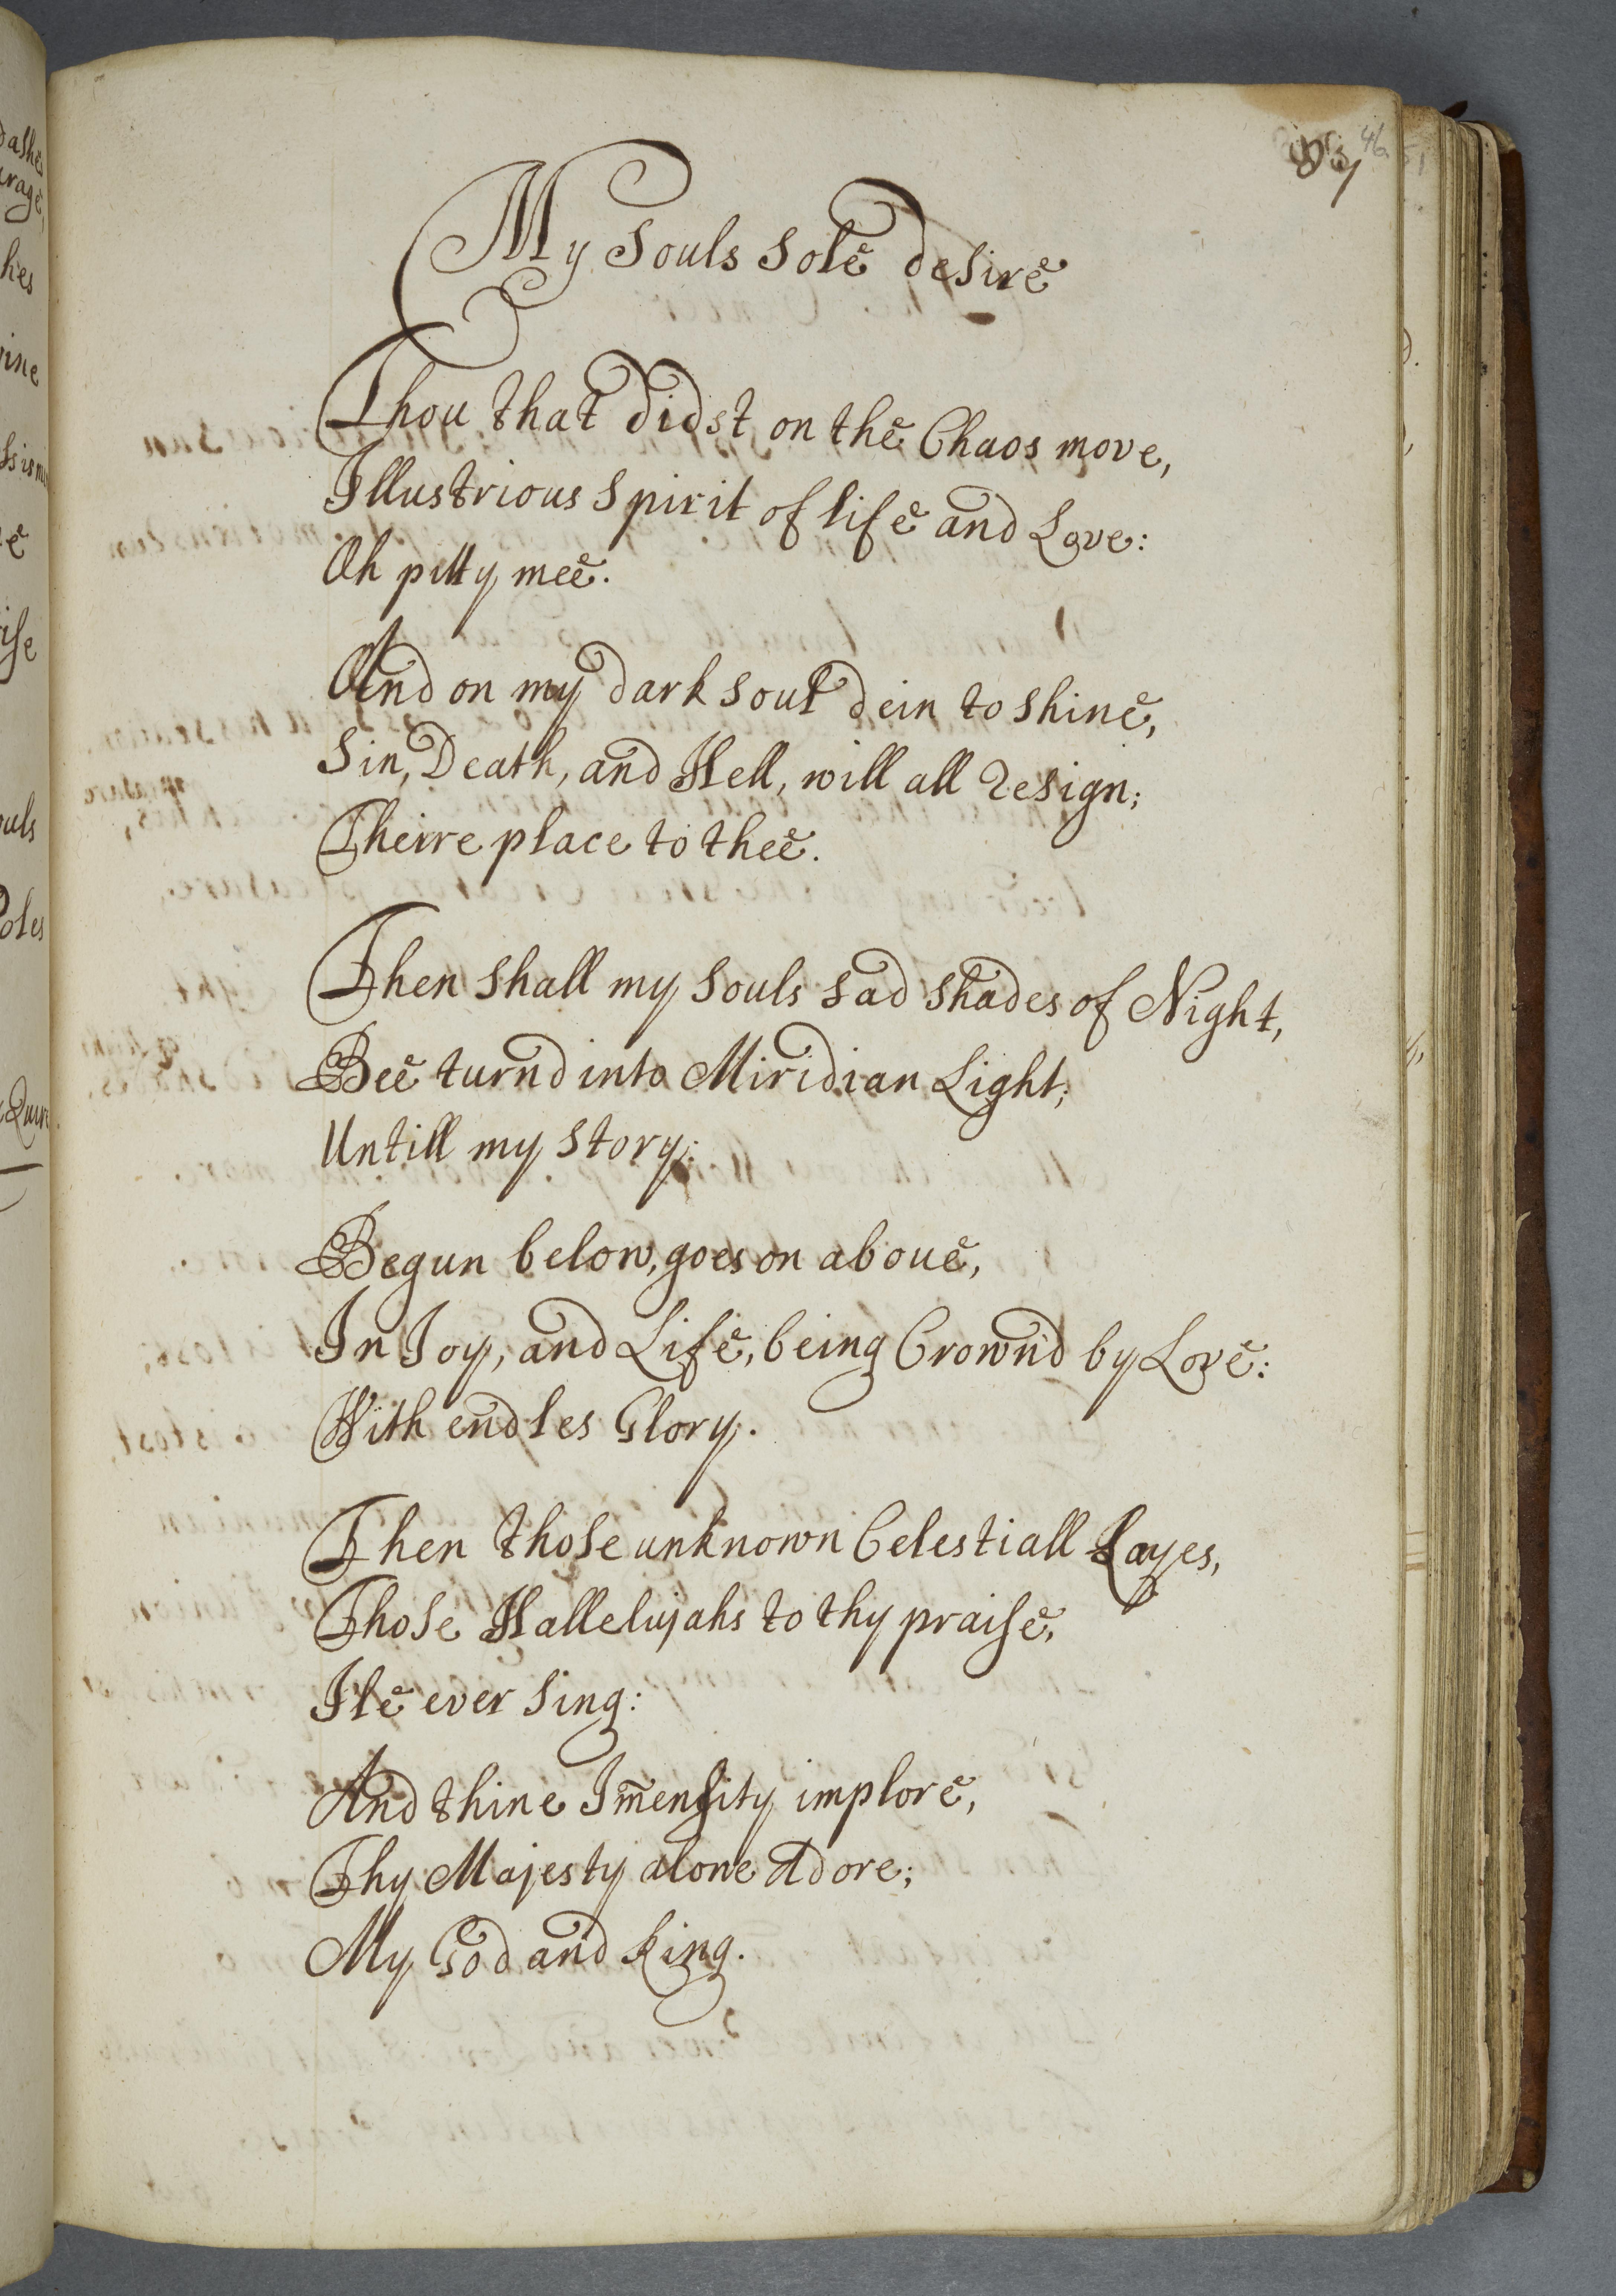 46
My Souls Sole desire
Thou that didst on the Chaos move,
Illustrious Spirit of life and Love:
Oh pitty mee.
And on my dark soul dein to shine,
Sin, Death, and Hell, will all resign;
Theire place to thee.
Then shall my Souls sad shades of Night,
Bee turnd into Miridian Light;
Untill my story:
Begun below, goes on aboue,
In Joy, and Life, being Crown'd by Love:
With endles Glory.
Then those unknown Celestiall Layes,
Those Hallelujahs to thy praise,
Ile ever sing:
And thine Im̅ensity implore,
Thy Majesty alone Adore;
My God and King.